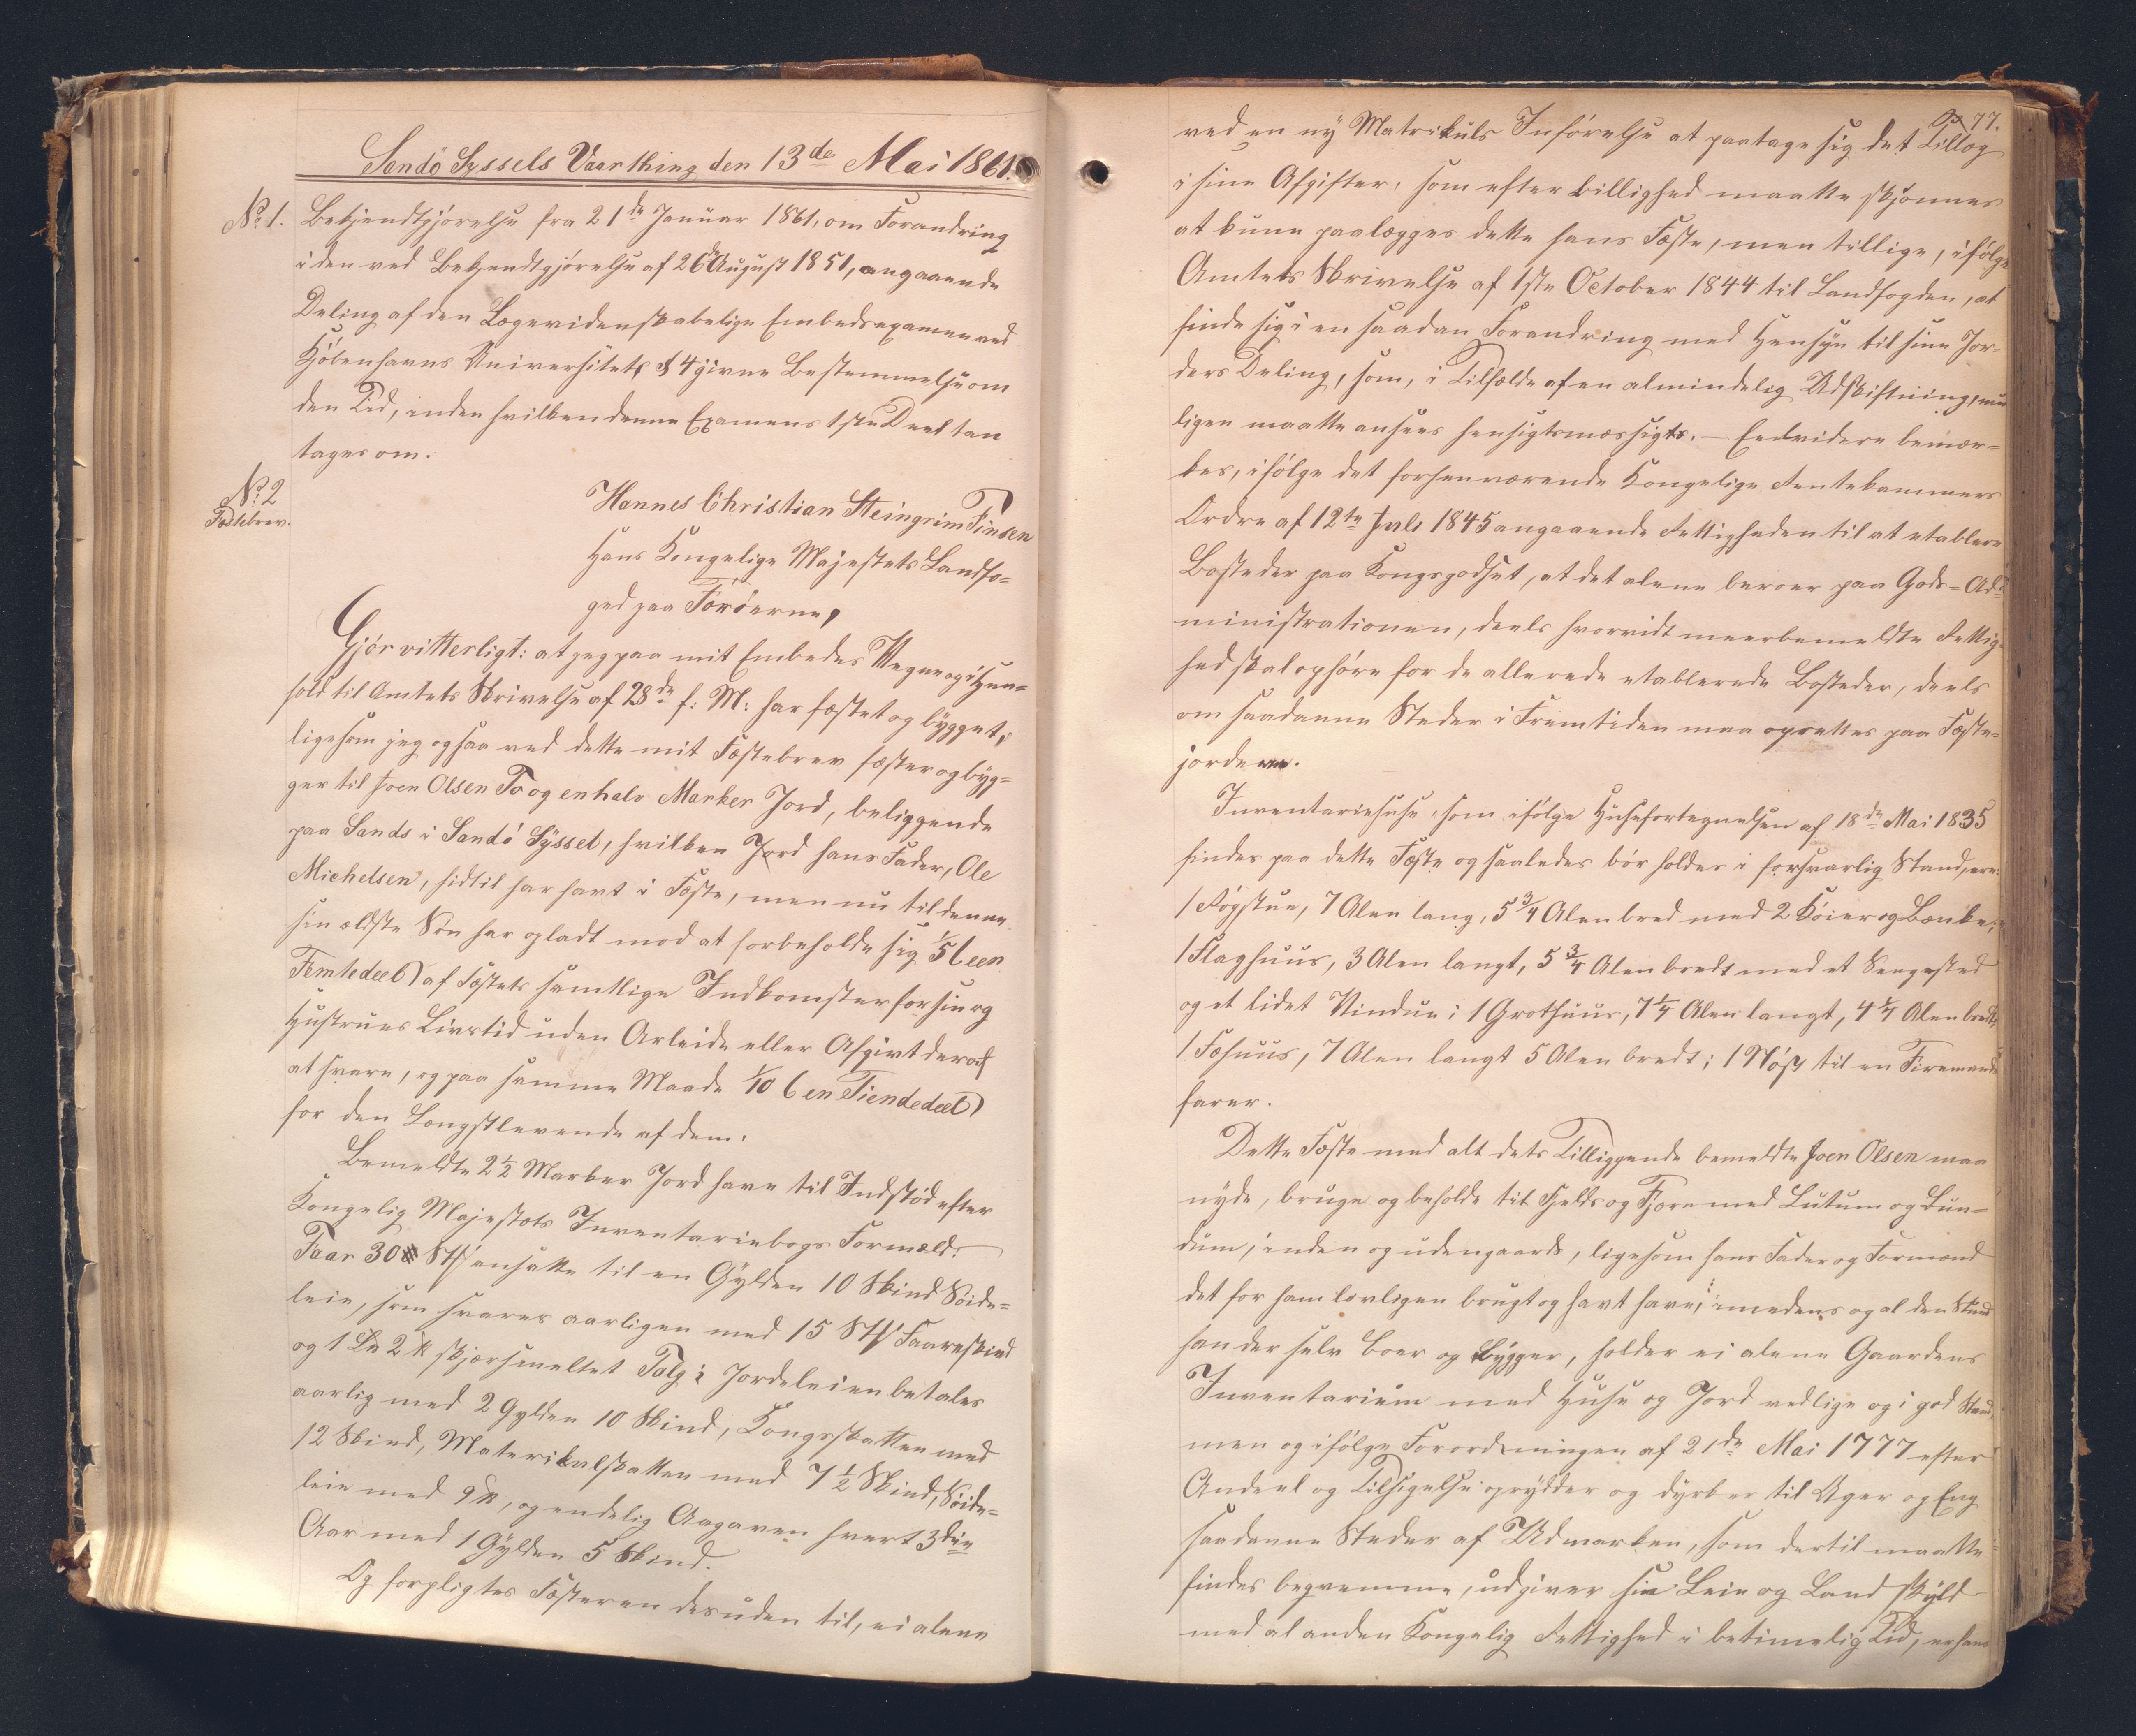 Sandö Syssels Vaarthing den 13de Mai 1861.
No 1. Bekjendtgjörelse fra 21de Januar 1861, om Forandring
i den ved Bekjendtgjörelse af 26de August 1851, angaaende
Deling af den Lægevidenskabelige Embedsexamen ved
Kjöbenhavns Universitets § 4 givne Bestemmelse om
den Tid, inden hvilken denne Examens 1ste Deel kan
tages om.
No 2
Fæstebrev.
Hannes Christian Steingrim Finsen
Hans Kongelige Majestets Landfo-
ged paa Færöerne,
Gjör vitterligt: at jeg paa mit Embedes Vegne og i Hen-
hold til Amtets Skrivelse af 28de f: M: har fæstet og bygget,
ligesom jeg ogsaa ved dette mit Fæstebrev fæster og byg-
ger til Joen Olsen To og en halv Marker Jord, beliggende
paa Sands i Sandö Syssel, hvilken Jord hans Fader, Ole
Michelsen, hidtil har havt i Fæste, men nu til denne
sin ældste Sön har opladt mod at forbeholde sig 1/5 (een
Femtedeel) af Fæstets samtlige Indkomster for sin og
Hustrues Livstid uden Arleide eller Afgivt deraf
at svare, og paa samme Maade 1/10 (en Tiendedeel)
for den Længstlevende af dem.
Bemeldte 2 1/2 Marker Jord have til Indstöd efter
Kongelig Majestæts Inventariebogs Formeld:
Faar 30 Stk ansatte til en Gylden 10 Skind Söide-
leie, som svares aarligen med 15 Stk Faareskind
og 1 L℔ 2 ℔ skjærsmeltet Talg; Jordeleien betales
aarlig med 2 Gylden 10 Skind, Kongsskatten med
12 Skind, Materikulskatten med 7 1/2 Skind, Söide-
leie med 9 ℔, og endelig Aagaven hvert 3die
Aar med 1 Gylden 5 Skind.
Og forpligtes Fæsteren desuden til, ei alene
77.
ved en ny Matrikuls Indförelse at paatage sig det Tillæg
i sine Afgifter, som efter billighed maatte skjönnes
at kunne paalægges dette hans Fæste, men tillige, ifölge
Amtets Skrivelse af 1ste October 1844 til Landfogden, at
finde sig i en saadan Forandring med Hensyn til sine Jor-
ders Deling, som, i Tilfælde af en almindelig Udskiftning,
ligen maatte ansees hensigtsmæssigt. — Endvidere bemær-
kes, ifölge det forhenværende Kongelige Rentekammers
Ordre af 12te Juli 1845 angaaende Rettigheden til at etablere
Bosteder paa Kongsgodset, at det alene beroer paa Gods-Ad-
ministrationen, deels hvorvidt meerbemeldte Rettig-
hed skal ophöre for de allerede etablerede Bosteder, deels
om saadanne Steder i Fremtiden maa oprettes paa Fæste-
jorderne.
Inventariehuse, som ifölge Husefortegnelsen af 18de Mai 1835
findes paa dette Fæste og saaledes bör holdes i forsvarlig Stand, ere:
1 Rögstue, 7 Alen lang, 5 3/4 Alen bred med 2 Köier og Bænke;
1 Slaghuus, 3 Alen langt, 5 3/4 Alen bredt med et Sengested
og et lidet Vindue; 1 Grothuus, 7 1/4 Alen langt, 4 1/4 Alen bredt,
1 Fæhuus, 7 Alen langt 5 Alen bredt; 1 Nöst til en Firemands
farer.
Dette Fæste med alt dets Tilliggende bemeldte Joen Olsen maa
nyde, bruge og beholde til Fjelds og Fjære med Lutum og Lun-
dum, inden og udengaards, ligesom hans Fader og Formænd
det for ham lovligen brugt og havt have, imedens og al den Stund
han der selv boer og bygger, holder ei alene Gaardens
Inventarium med Huse og Jord vedlige og i god Stand,
men og ifölge Forordningen af 21de Mai 1777 efter
Andeel og Tilsigelse oprydder og dyrker til Ager og Eng
saadanne Steder af Udmarken, som dertil maatte
findes beqvemme, udgiver sin Leie og Land skyld
med al anden Kongelig Rettighed i betimelig Tid, er hans